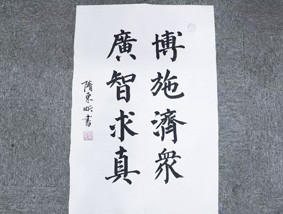 博施濟衆
廣智求真
隋東
書